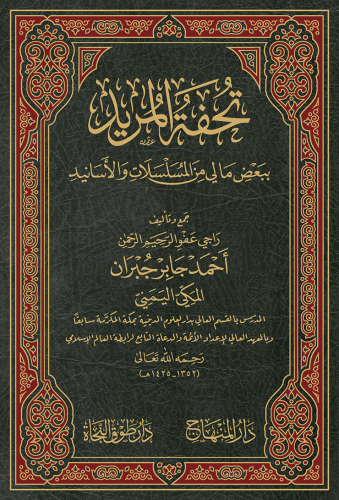 تحفة المريد
ببعض مالي من المسلسلات والأسانيد
جمع وتأليف
راجي عفو الرحيم الرحمن
أحمد جابر جبران
المكي اليمني
المدرس بالقسم العالي بدار لعلوم الدينية بمكة المكرمة سابقا
وبالمعهد العالي لإعداد الأئمة والدعاة التابع لرابطة العالم الإسلامي
رحمه الله تعالى
(١٣٥٢-١٤٢٥هـ)
دار المنهاج
دار طوق النجاة